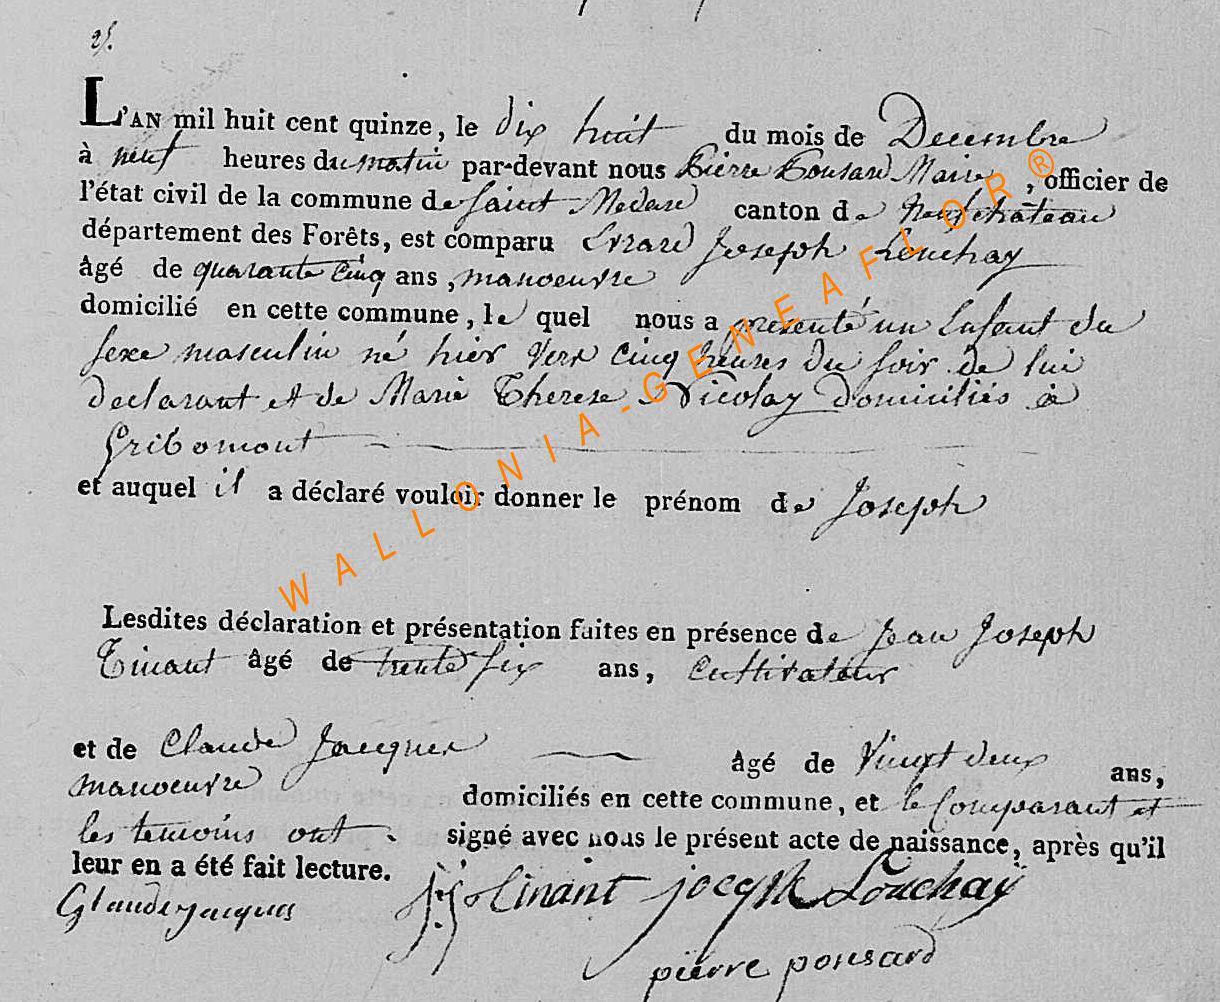 25.
L'AN mil huit cent quinze, le dix huit du mois de Decembre
à neuf heures du matin par-devant nous Pierre Ponsard Maire, officier de
l'état civil de la commune de Saint Medard canton de Neufchâteau
département des Forêts, est comparu Errard Joseph Louchay
âgé de quarante cinq ans, manoeuvre
domicilié en cette commune, le quel nous a presenté un Enfant du
sexe masculin né hier vers cinq heures du soir de lui
declarant et de Marie Therese Nicolay domiciliés à
Gribomont
et auquel il a déclaré vouloir donner le prénom de Joseph
Lesdites déclaration et présentation faites en présence de Jean Joseph
Tinant âgé de trente six ans, Cultivateur
et de Claude Jacques âgé de Vingt deux ans,
manoeuvre domiciliés en cette commune, et le Comparant et
les temoins ont signé avec nous le présent acte de naissance, après qu'il
leur en a été fait lecture.
Glaude jacques j:j: tinant Louchaÿ
pierre ponsard
WALLONIA-GENEAFLOR®